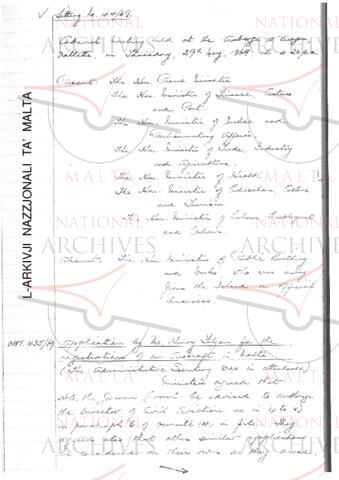 Sitting No. 44/69.
Cabinet meeting held at the Auberge d'Aragon
Valletta, on Thursday, 29th May, 1969, at 4.30 p.m.
Present: The Hon. Prime Minister
The Hon. Minister of Finance, Customs
and Port.
The Hon. Minister of Justice and
Parliamentary Affairs.
The Hon. Minister of Trade, Industry
and Agriculture.
The Hon. Minister of Health
The Hon. Minister of Education, Culture
and Tourism.
The Hon. Minister of Labour, Employment
and Welfare.
Absent: The Hon. Minister of Public Building
and Works who was away
from the Island on official
business.
OPM. 435/69
Application by Mr. Henry for the
registration of an Aircraft in Malta
(The Administrative Secretary was in attendance)
Ministers agreed that
H.E. the Governor General be advised to authorize
the Director of Civil Aviation as in to
in paragraph 6 of minute in file. They
agreed also that other similar applications
be considered on their own as they arise.
L-ARKIVJI NAZZJONALI TA' MALTA
NATIONAL
ARCHIVES
MALTA